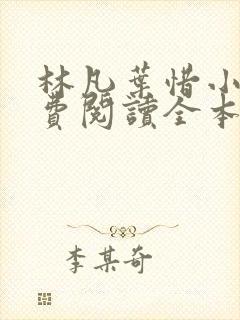 林凡葉惜小
費閱讀全本
李某奇